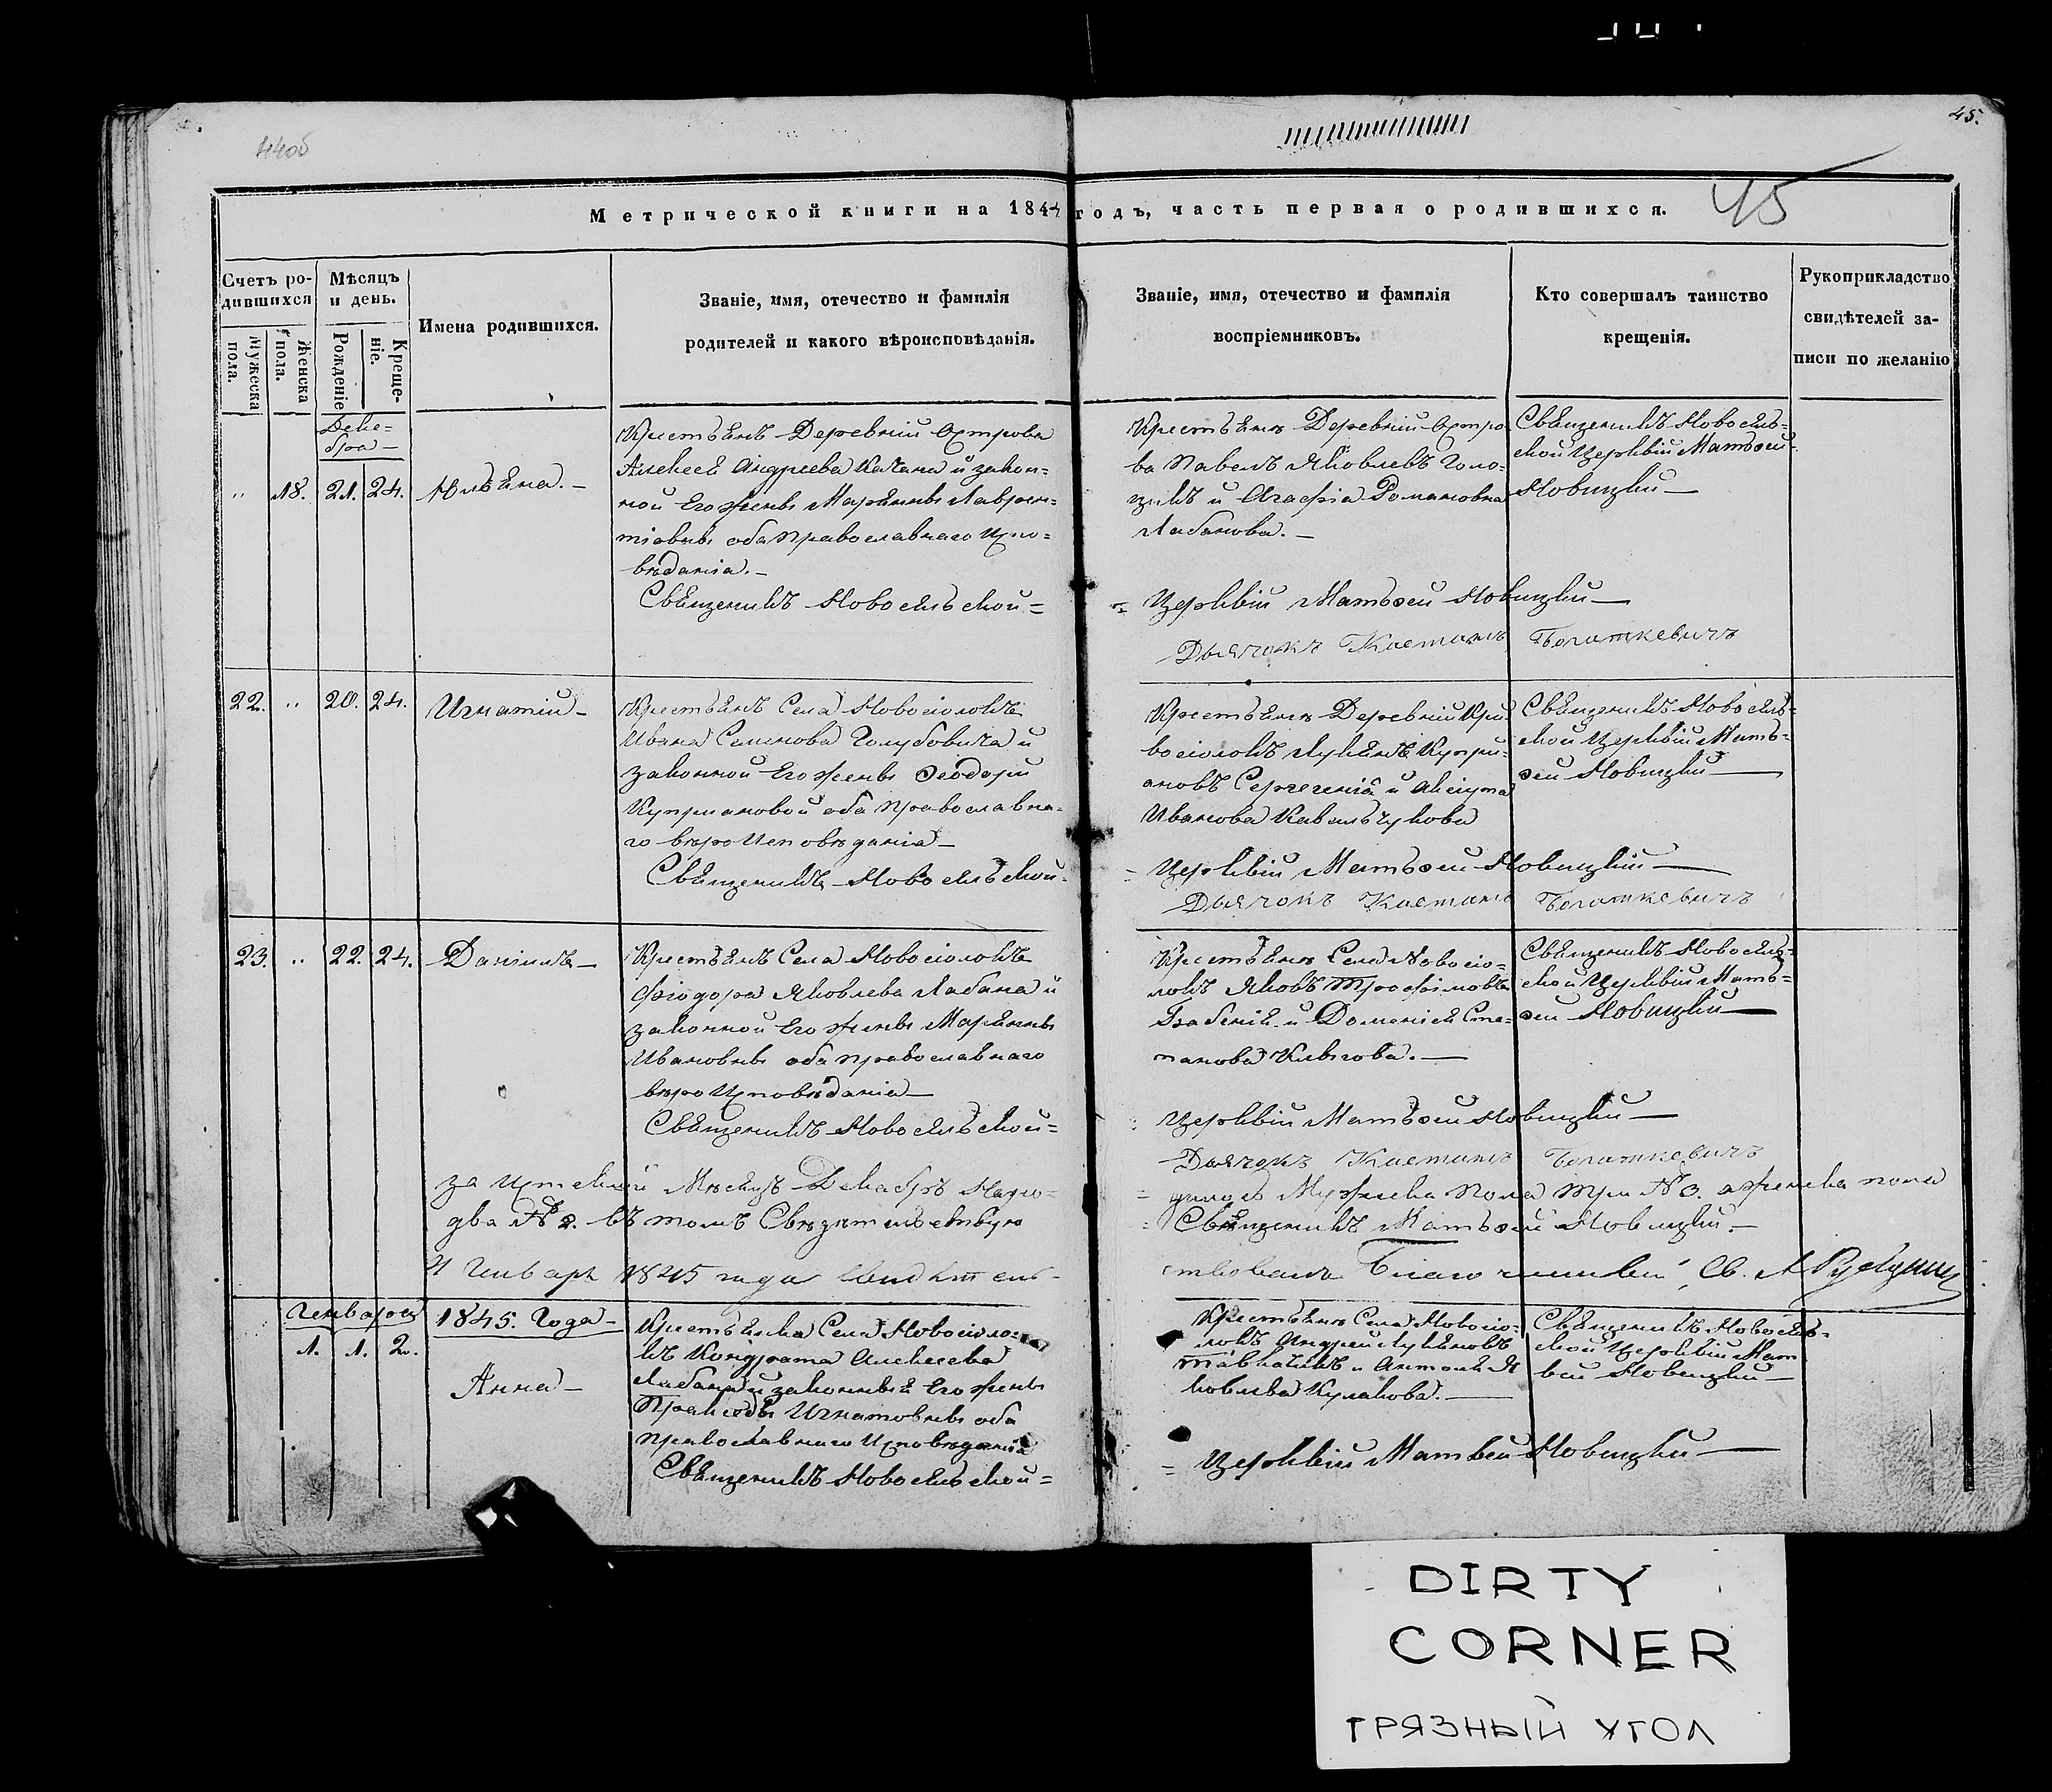 44об
45.
45
Метрической книги на 1844 годъ, часть первая о родившихся.
Счетъ ро-
дившихся
Мужеска
пола.
Женска
пола.
Мѣсяцъ
и день.
Рожденіе
Креще-
ніе.
Имена родившихся.
Званіе, имя, отечество и фамилія
родителей и какого вѣроисповѣданія.
Званіе, имя, отечество и фамилія
воспріемниковъ.
Кто совершалъ таинство
крещенія.
Рукоприкладство
свидѣтелей за-
писи по желанію
Дека=
бра
„ 18. 21. 24.
Юльяна. —
Крестьянъ Деревний Острова
Алексея Андреева Качана и закон=
ной Его жены Марьянны Лаврен=
тіовны оба Православнаго Испо=
вѣданія. —
Священикъ Новосельской =
Крестьяня Деревний Остро
ва Павелъ Яковлевъ Голо=
и Агафіа Романовна
Лабанова. —
= Церквіи Матьѳей Новицкій —
Дьячокъ Каетанъ Богаткевичъ
Священикъ Новосель=
ской Церквіи Матьѳей
Новицкій —
22. „ 20. 24.
Игнатій —
Крестьянъ Села Новосіолокъ
Ивана Семенова Голубовича и
законной Его жены Ѳеодоры
Куприановой оба Православна=
го вѣроИсповѣданія —
Священикъ Новосельской =
Крестьяня Деревний Кри
восіолокъ Лукянъ Купри=
ановъ и
Иванова
= Церквіи Матьѳей Новицкій —
Дьячокъ Каетанъ Богаткевичъ
Священикъ Новосель=
ской Церквіи Мать=
ѳей Новицкій —
23. „ 22. 24.
Даніилъ —
Крестьянъ Села Новосіолокъ
Фіодора Яковлева Лабана и
законной Его жены Марянны
Ивановны оба православнаго
вѣроИсповѣданія —
Священикъ Новосельской =
Крестьяня Села Новосіо=
локъ Яковъ Трофимовъ
и Доменіея Сте=
панова —
= Церквіи Матьѳей Новицкій —
Дьячокъ Каетанъ Богаткевичъ
Священикъ Новосель=
ской Церквіи Мать=
ѳей Новицкій —
За Истекший Мѣсяцъ Декабръ Наро=
= дилось Мужеска Пола Три № 3. а женска пола
два № 2. въ томъ Свѣдѣтельствую
= Священикъ Матьѳей Новицкій. —
Генваря 1845 года свидѣтель=
ствовалъ Благочинный, Св.
Генваря 1845. Года —
1. 1. 2.
Анна —
Крестьянска Села Новосіоло=
къ Кондрата Алексеева
Лабана и законныя Его жены
Праксэды Игнатовны оба
православнаго Исповѣданія
Священикъ Новосельской =
Крестьяня Села Новосіо=
локъ Андрей Лукяновъ
и Антоля Я
ковлева Кулакова. —
= Церквіи Матвей Новицкій —
Священикъ Новосель=
ской Церквіи Мат
вей Новицкій —
DIRTY
CORNER
ГРЯЗНЫЙ УГОЛ